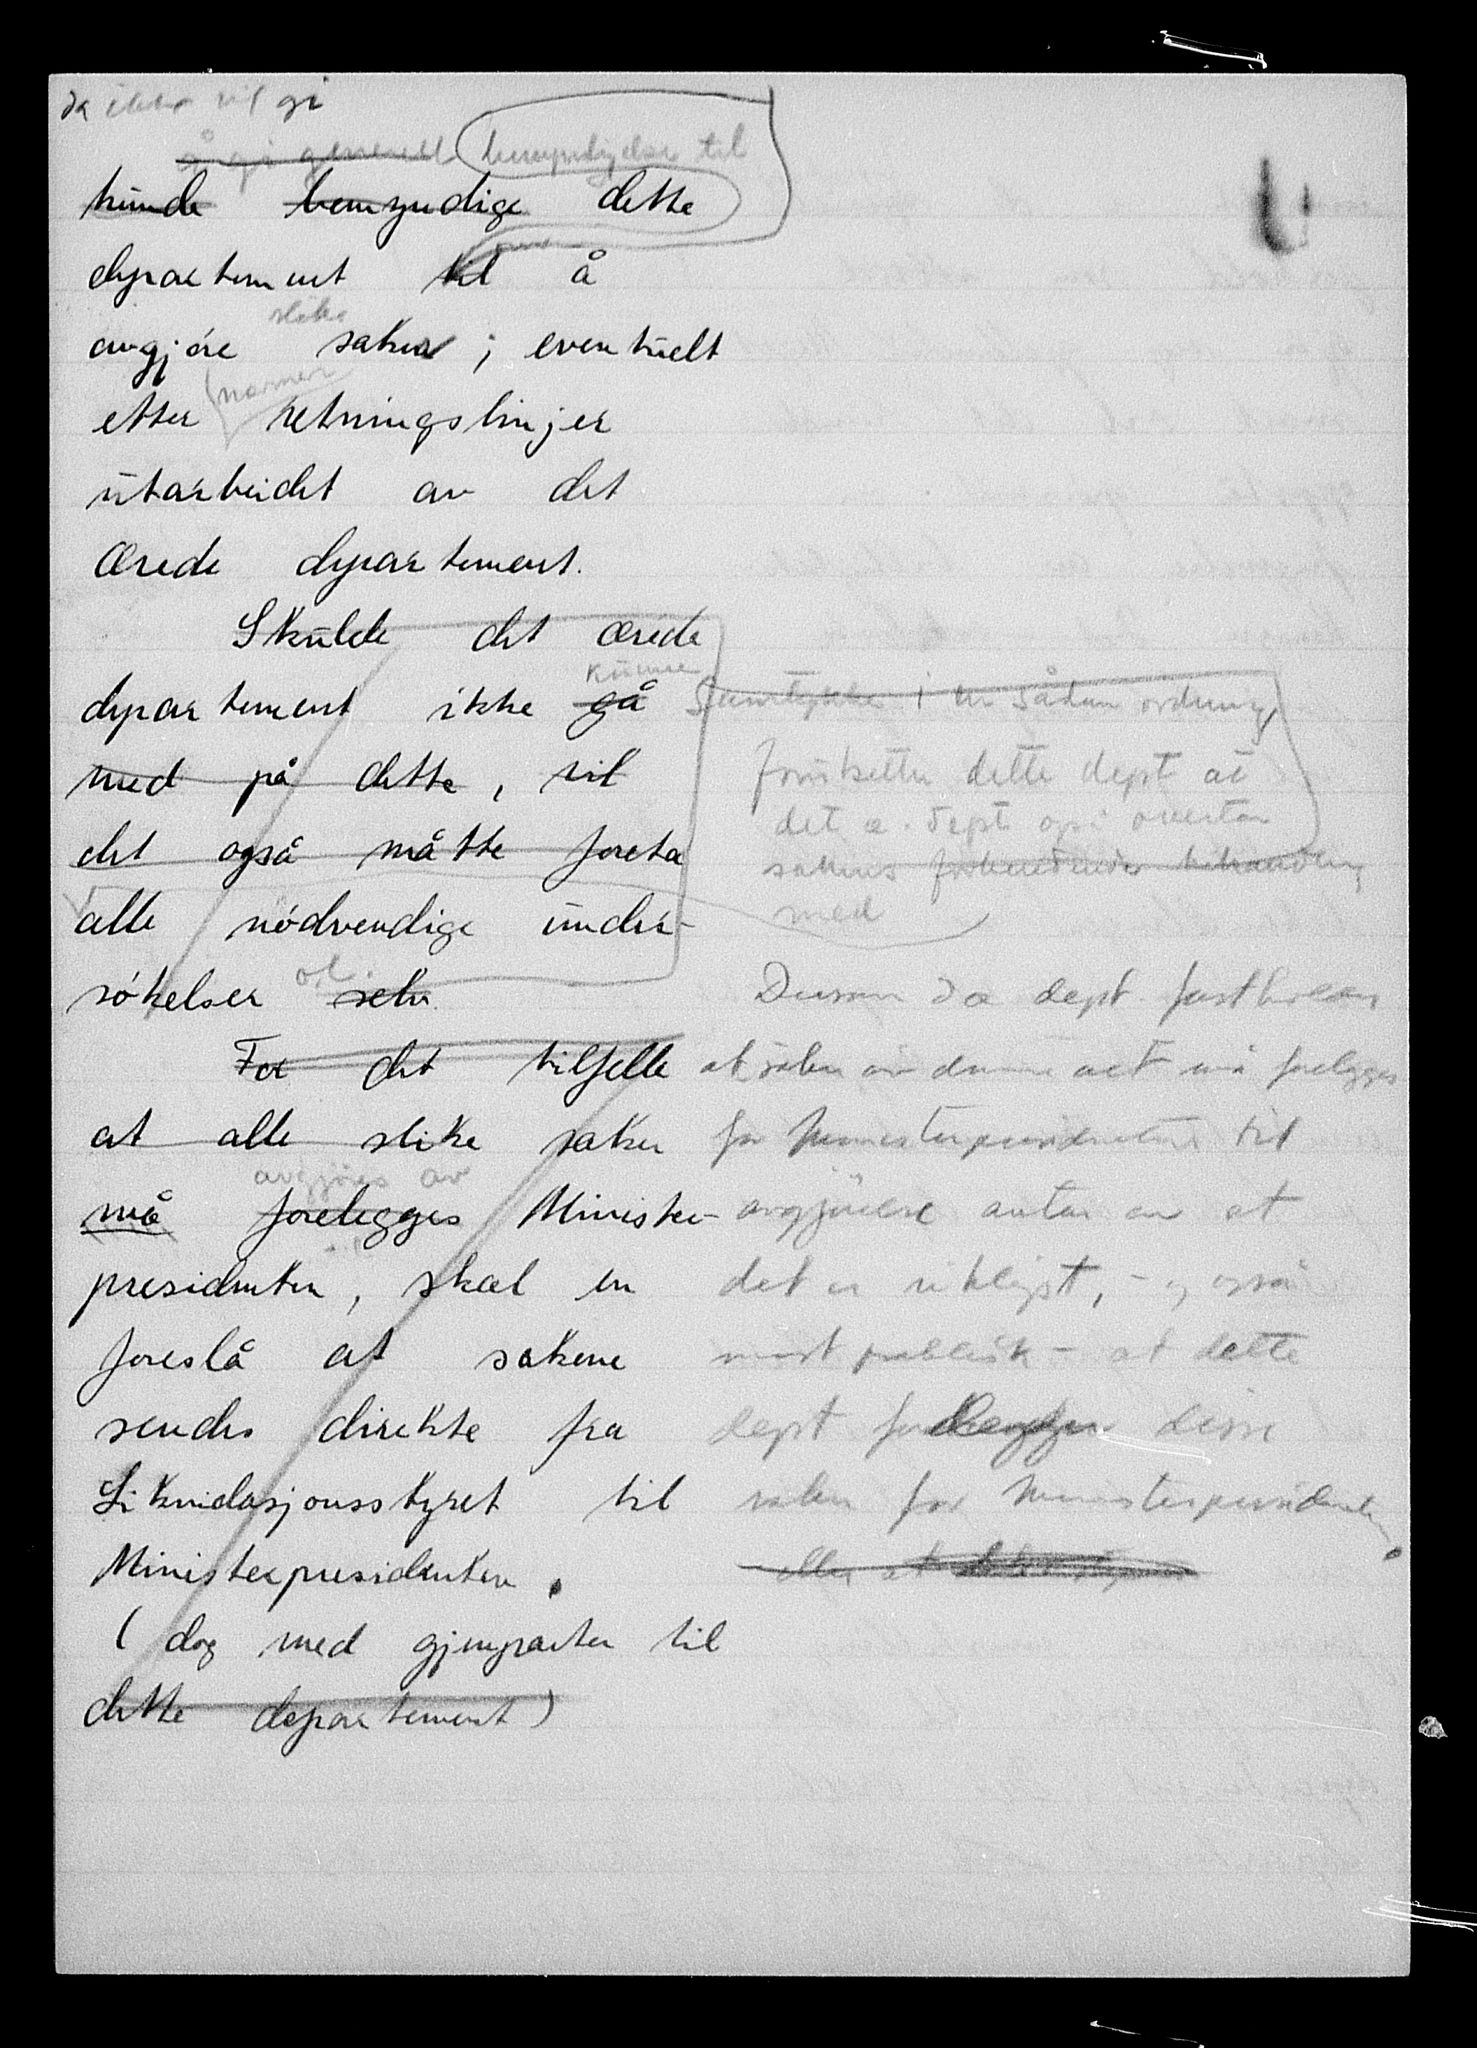 da ikke vil gi
å gi generell bemyndigelse til
kunde bemyndige dette
departement til å
slike
avgjøre saker, eventuelt
normer
etter retningslinjer
utarbeidet av det
ærede departement.
Skulde det ærede
kunne
departement ikke gå
med på dette, vil
det også måtte foreta
alle nödvendige under-
søkelser selv.
For det tilfelle
at alle slike saker
avgjöres av
må forelegges Minister-
presidenten, skal en
foreslå at sakene
sendes direkte fra
Likvidasjonsstyret til
Ministerpresidenten.
(dog med gjenparter til
dette departement)
Samtykke i en sådan ordning,
forutsetter dette dept at
det æ. dept også overtar
sakens forberedende behandling
med
Dersom d æ dept. fastholder
at saker av denne art må forelegges
for Ministerpresidenten til
avgjörelse antar en at
det er riktigst, - og også
mest praktisk - at dette
dept forelegger disse
saker for Ministerpresidenten.
eller at